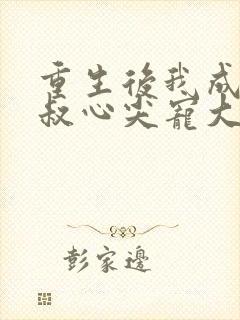 重生後我成
叔心尖寵大
彭家邊